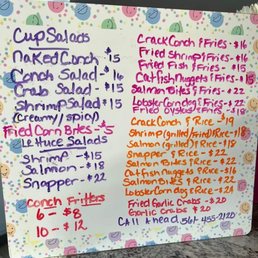 Cup Salads
Naked Conch - $15
Conch Salad - $16
Crab Salad - $15
Shrimp Salad $15
(creamy / spicy)
Fried Corn Bites - $5
Lettuce Salads
Shrimp - $15
Salmon - $18
Snapper - $22
Conch Fritters
6 - $8
10 - $12
Crack Conch & Fries - $16
Fried Shrimp & Fries - $16
Fried Fish & Fries - $15
Catfish Nuggets & Fries - $15
Salmon Bites & Fries - $22
Lobster Corn dog & Fries - $22
Fried Oysters & Fries - $18
Crack Conch & Rice - $19
Shrimp (grilled/fried) Rice - $18
Salmon (grilled) & Rice - $18
Snapper & Rice - $22
Salmon Bites & Rice - $22
Catfish Nuggets & Rice - $16
Salmon Bites & Rice - $22
Lobster Corn dog & Rice - $24
Fried Garlic Crabs - $20
Garlic Crabs $20
Call Ahead 561-455-2120